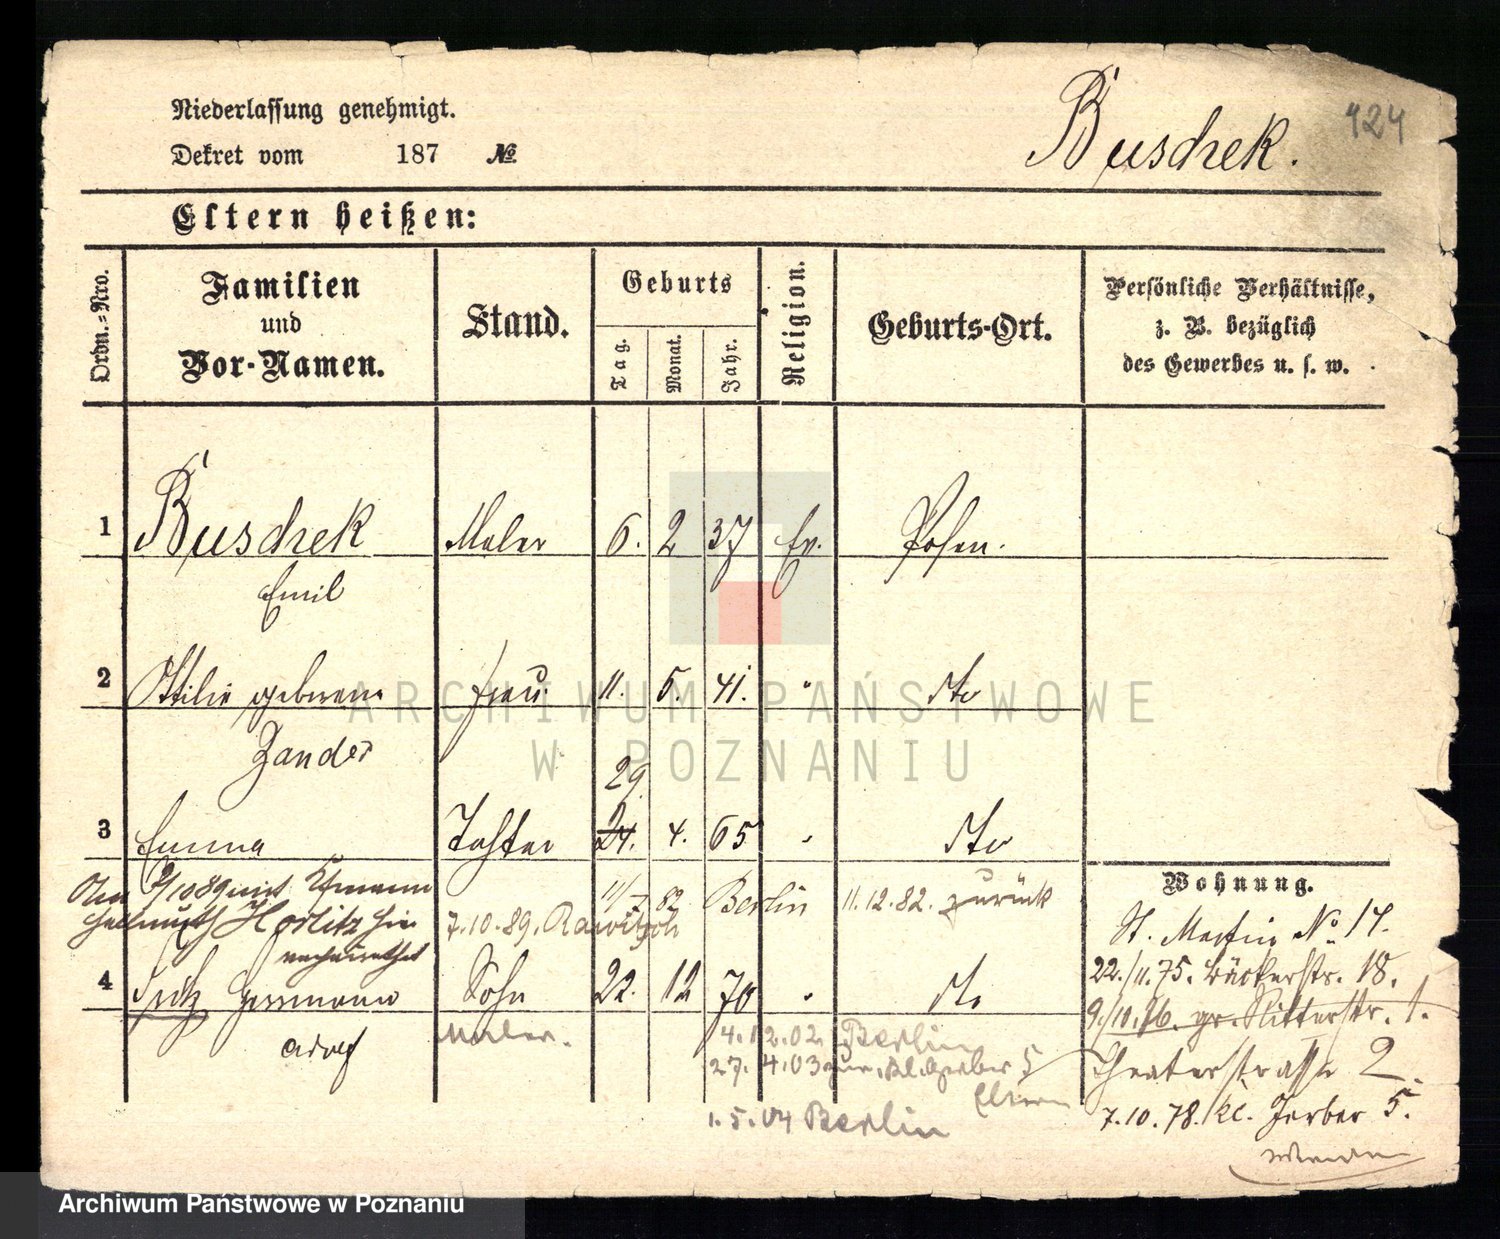 Niederlassung genehmigt.
Dekret vom 187 №
Buschek.
424
Eltern heißen:
Ordn.-Nro.
Familien
und
Vor-Namen.
Stand.
Geburts
Tag.
Monat.
Jahr.
Religion.
Geburts-Ort.
Persönliche Verhältnisse,
z. B. bezüglich
des Gewerbes u. s. w.
1 Buschek Maler 6. 2 37 Ev. Posen.
Emil
2 Ottilie geborene Frau 11. 5. 41. " dto
Zander
29.
3 Emma Tochter 24. 4. 65 " dto
9/10 89 mit Ehemann 11/7 82 Berlin 11.12.82. zurück
Hellmuth Horlitz hier 7.10.89. Rawitsch
verheirathet
4 Fritz Hermann Sohn 22. 12 70 " dto
Adolf
Maler.
4.12.02. Berlin
27.4.03 zur. Kl. Gerber 5
Eltern
1.5.04 Berlin
Wohnung.
St. Martin No 14.
22./11.75. Bäckerstr. 18.
9./10.76. gr. Ritterstr. 1.
Theaterstrasse 2.
7.10.78. Kl. Gerber 5.
ARCHIWUM PAŃSTWOWE
W POZNANIU
Archiwum Państwowe w Poznaniu